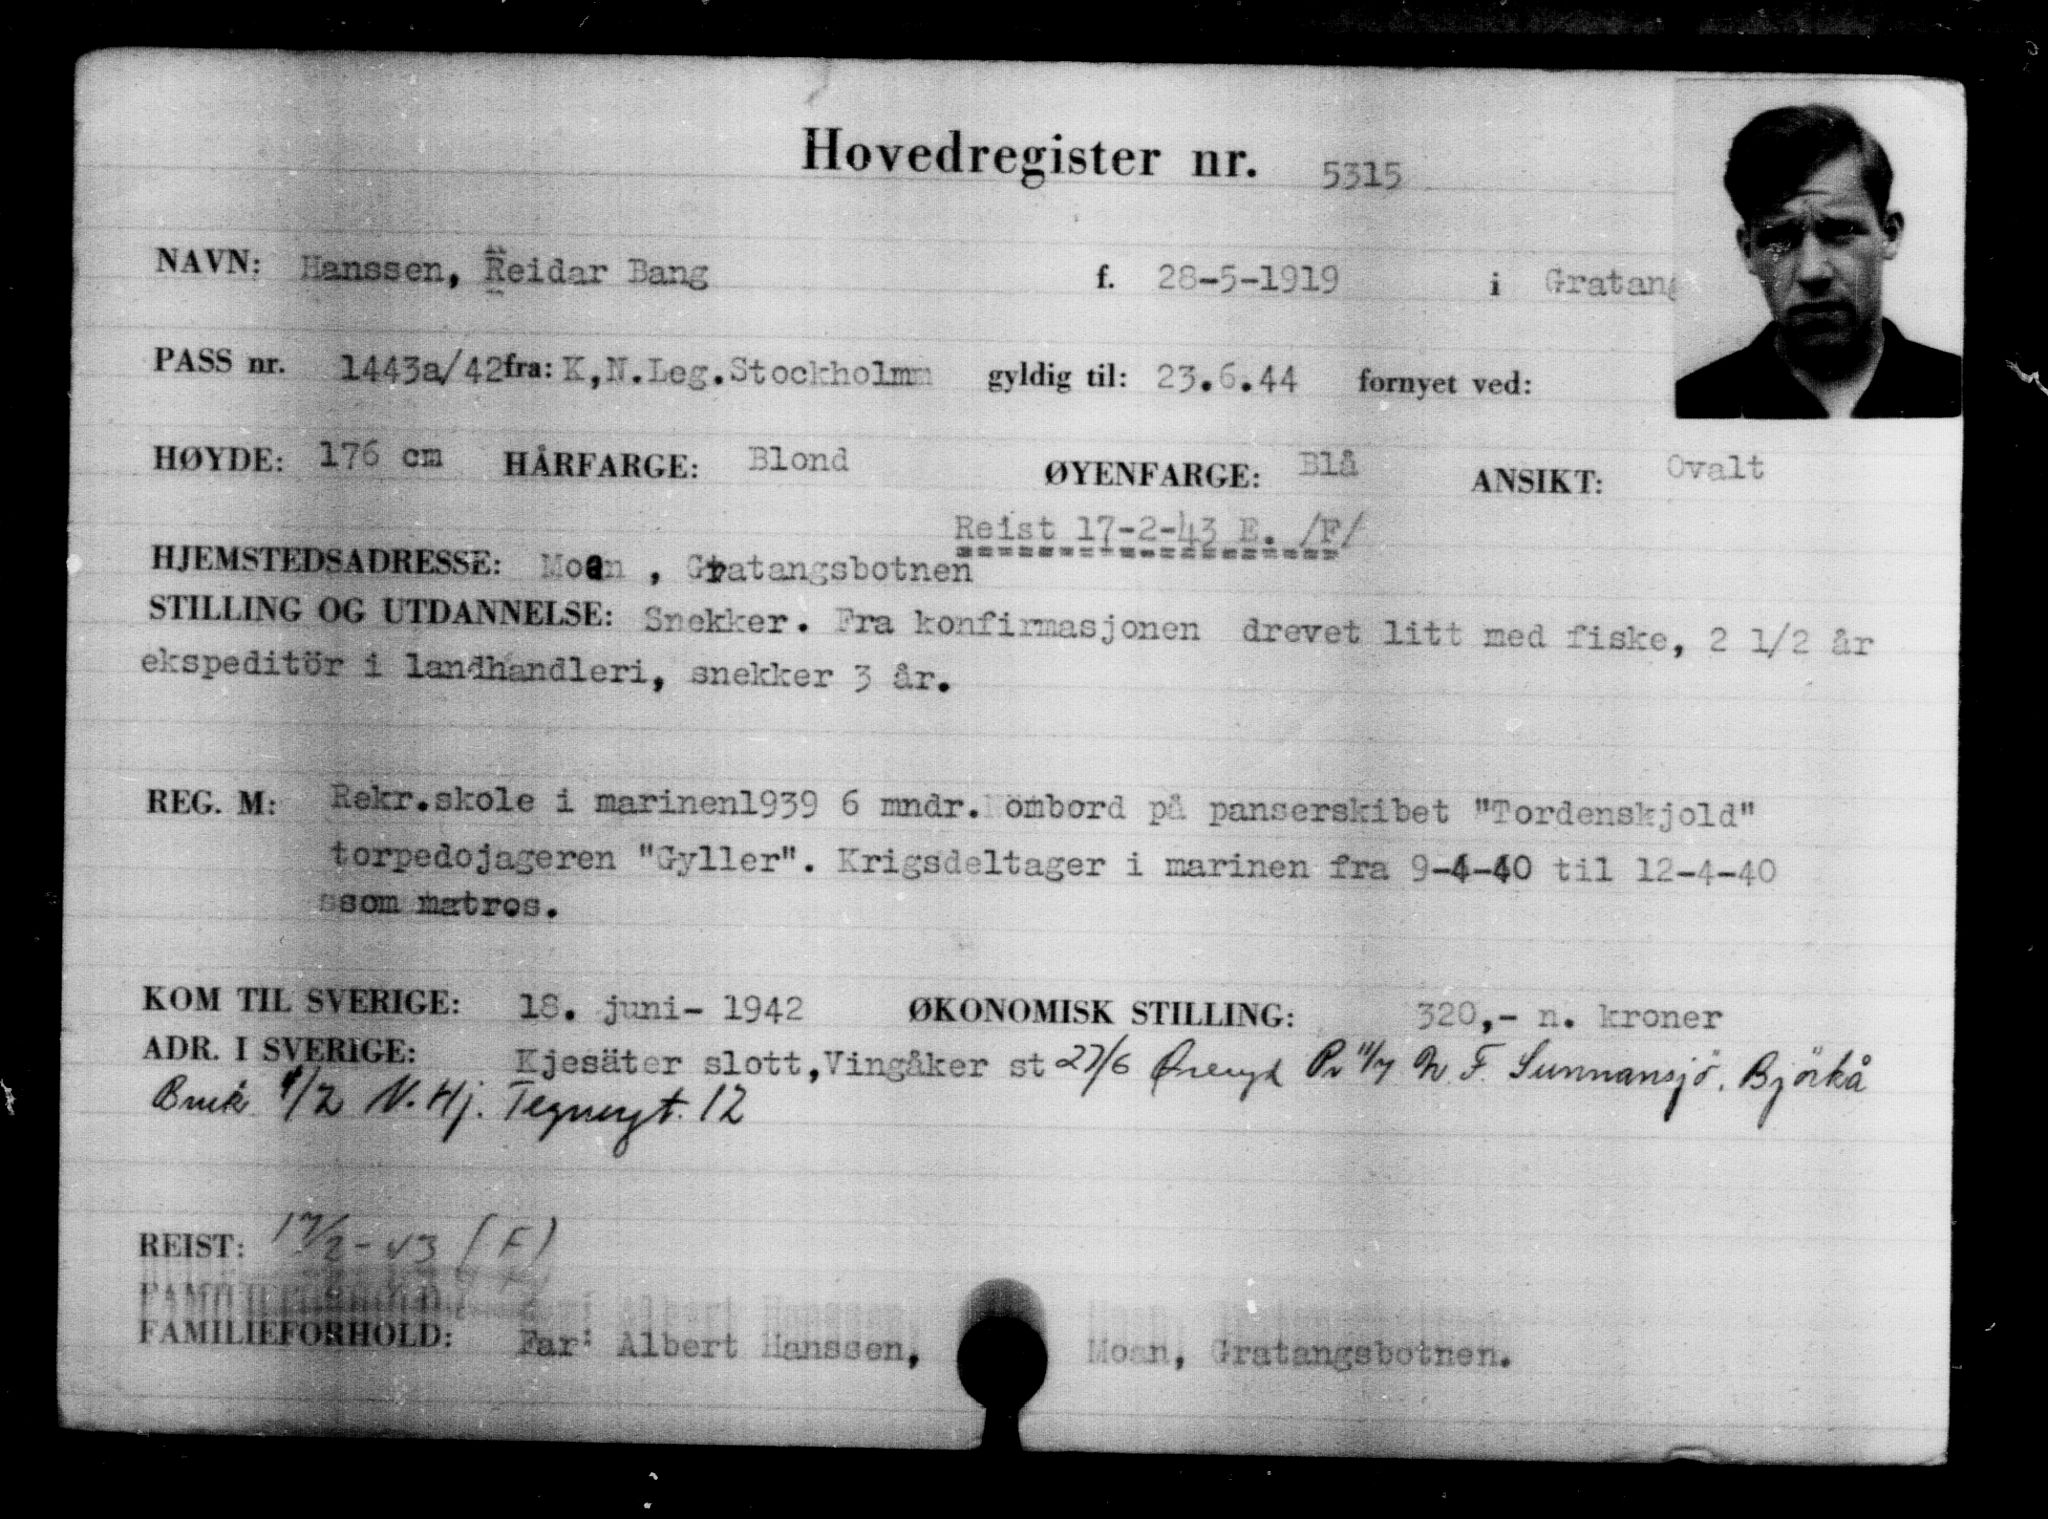 Hovedregister nr. 5315
NAVN: Hanssen, Reidar Bang f. 28-5-1919 i Gratang
PASS nr. 1443a/42 fra: K,N.Leg.Stockholm gyldig til: 23.6.44 fornyet ved:
HØYDE: 176 cm HÅRFARGE: Blond ØYENFARGE: Blå ANSIKT: Ovalt
Reist 17-2-43 E. /F/
HJEMSTEDSADRESSE: Moan , Gratangsbotnen
STILLING OG UTDANNELSE: Snekker. Fra konfirmasjonen drevet litt med fiske, 2 1/2 år
ekspeditör i landhandleri, snekker 3 år.
REG. M: Rekr.skole i marinen1939 6 mndr. ombord på panserskibet "Tordenskjold"
torpedojageren "Gyller". Krigsdeltager i marinen fra 9-4-40 til 12-4-40
ssom matros.
KOM TIL SVERIGE: 18. juni- 1942 ØKONOMISK STILLING: 320,- n. kroner
ADR. I SVERIGE: Kjesäter slott,Vingåker st 27/6 Pr 11/7 N. F. Sunnansjö. Björkå
Bruk 1/2 N. Hj. Tegnergt. 12
REIST: 17/2-43 (F)
FAMILIEFORHOLD: Far: Albert Hanssen, Moan, Gratangsbotnen.